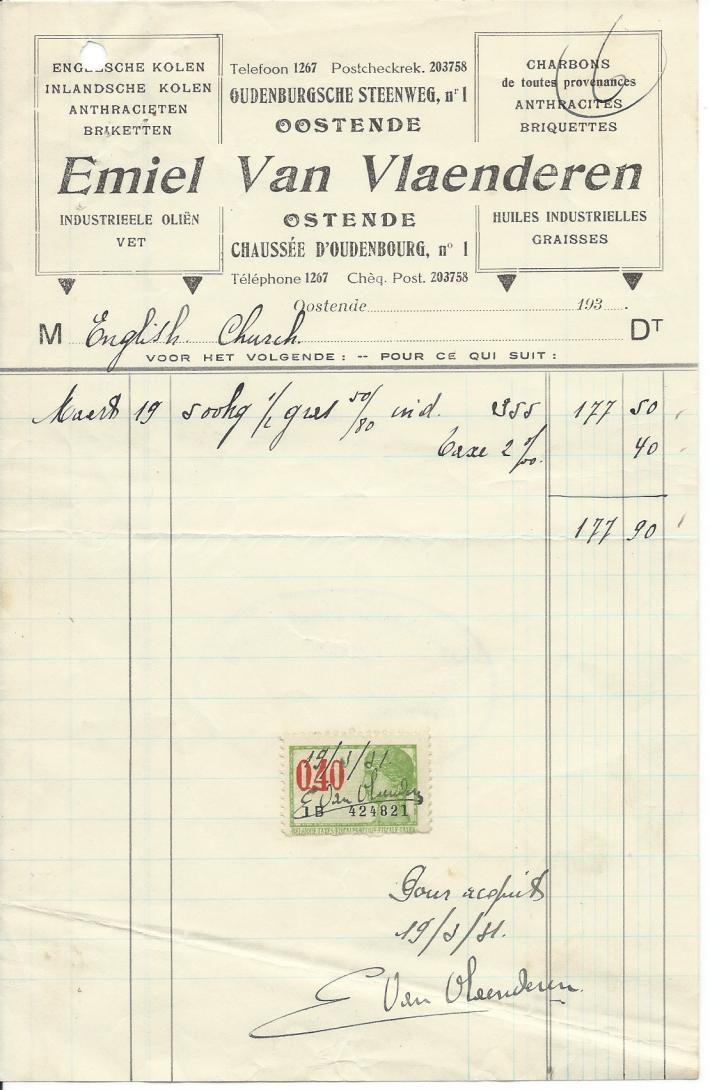 16
ENGELSCHE KOLEN
INLANDSCHE KOLEN
ANTHRACIETEN
BRIKETTEN
Telefoon 1267 Postcheckrek. 203758
OUDENBURGSCHE STEENWEG, nr 1
OOSTENDE
CHARBONS
de toutes provenances
ANTHRACITES
BRIQUETTES
Emiel Van Vlaenderen
INDUSTRIEELE OLIËN
VET
OSTENDE
CHAUSSÉE D'OUDENBOURG, n° 1
Téléphone 1267 Chèq. Post. 203758
HUILES INDUSTRIELLES
GRAISSES
Oostende 193 .
M English Church. DT
VOOR HET VOLGENDE : -- POUR CE QUI SUIT :
Maart 19 500kg 1/2 gras 50/80 ind. 355 177 50
taxe 2 0/00. 40
177 90
19/3/31
0.40
E Van Vlaenderen
1B 424821
Pour acquit
19/3/31.
E Van Vlaenderen.